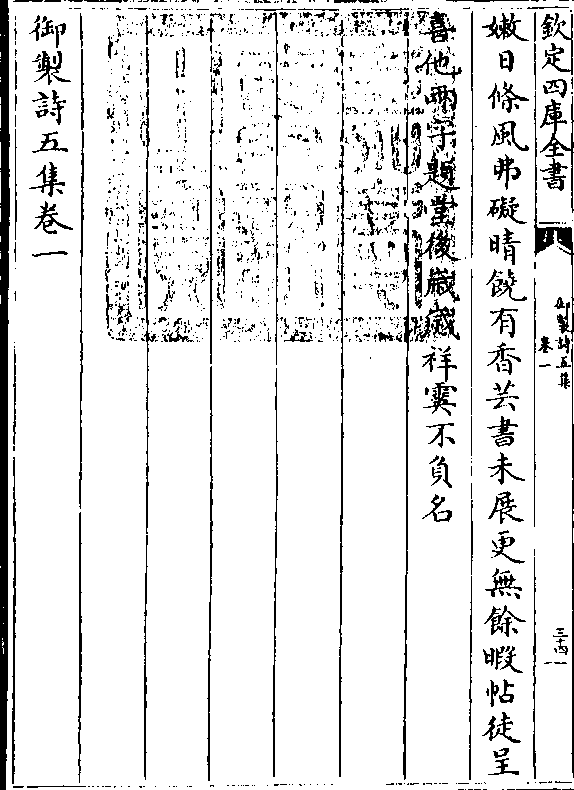 欽定四庫全書
御製詩五集
卷一
三十四
嫩日條風弗礙晴饒有香芸書未展更無餘暇帖徒呈
喜他兩字題堂後歲歲祥霙不負名
御製詩五集卷一